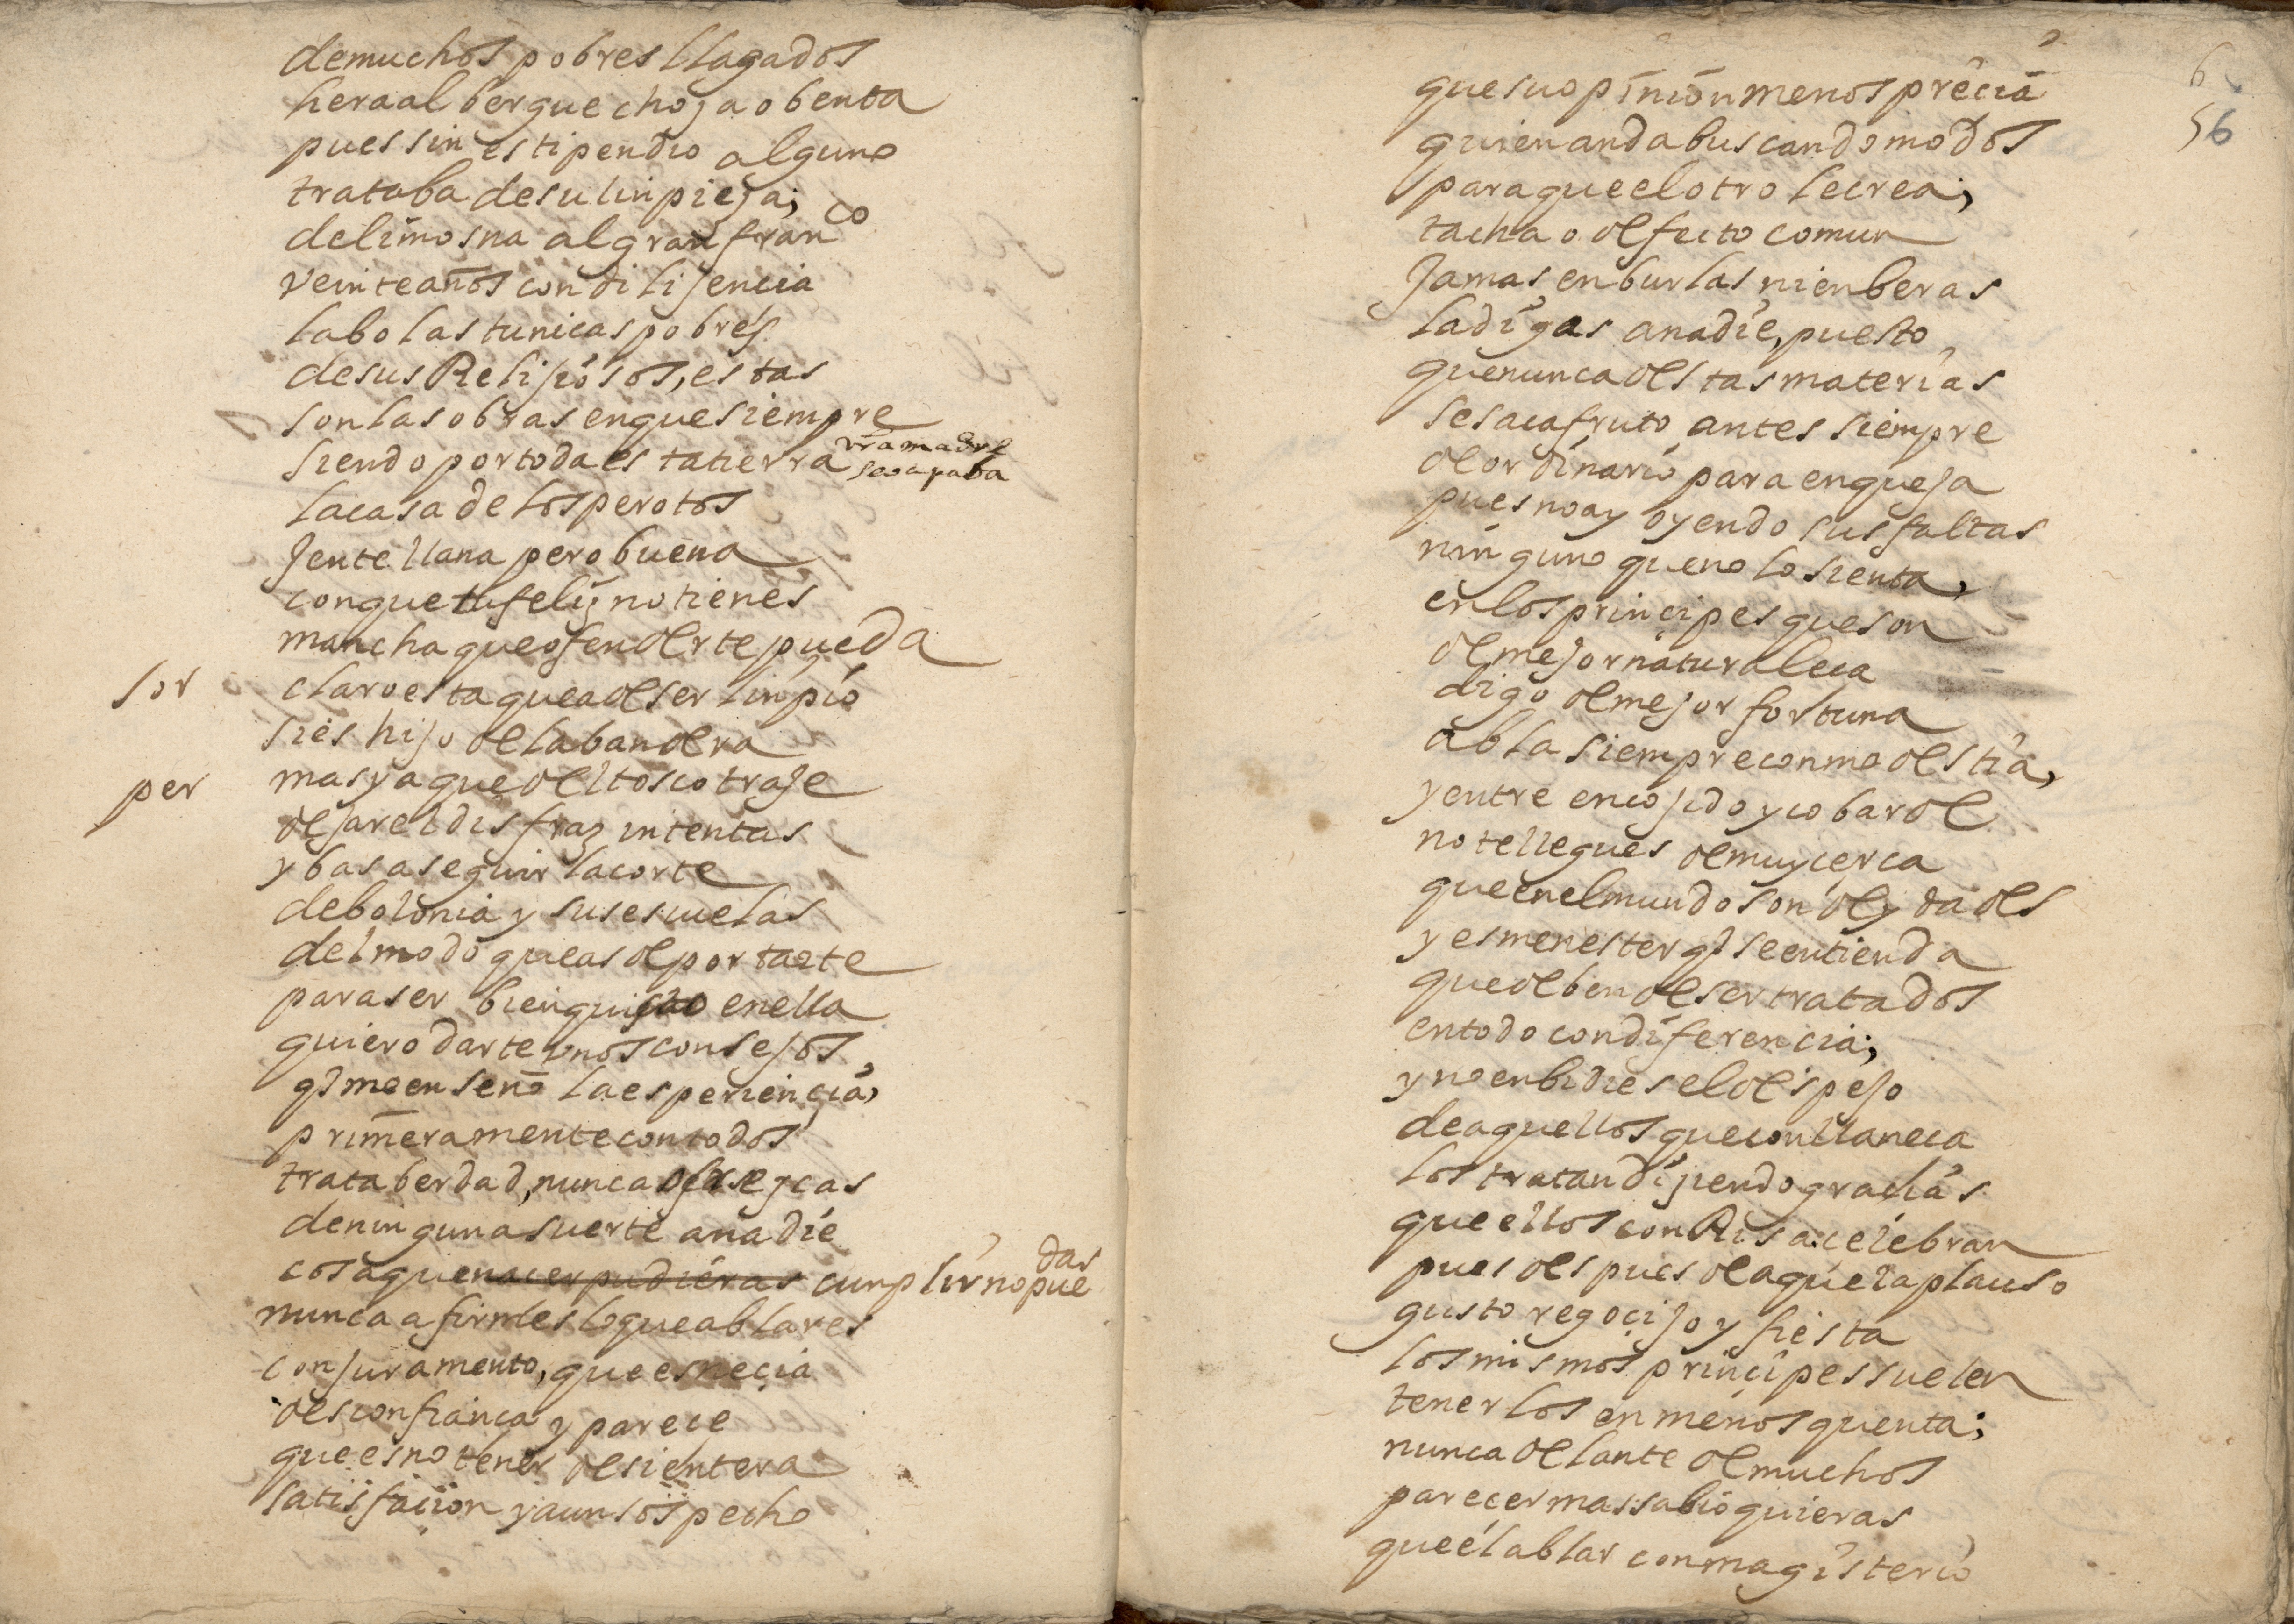 de muchos pobres llagados
hera albergue choça o benta
pues sin estipendio alguno
trataba de su linpieça;
de limosna al gran fran^co
veinte años con dilijencia
labo las tunicas pobres
de sus Relijiosos, estas
son las obras en que siempre
vra madre
siendo por toda esta tierra
se ocupaba
la casa de los perotos
Jente llana pero buena
con que tu feliz no tienes
mancha que ofenderte pueda
sor claro esta que a de ser linpio
si es hijo de labandera
per mas ya que del tosco traje
dejar el disfraz intentas
y bas a seguir la corte
de bolonia y sus escuelas
del modo que as de portarte
para ser bienquisto en ella
quiero darte unos consejos
q̃ me enseño la esperiencia,
primeramente con todos
trata berdad, nunca ofrezcas
de ninguna suerte a nadie
das
cosa que nacer pudieras cunplir no pue
nunca afirmes lo que ablares
con juramento, que es necia
desconfianca y parece
que es no tener de si entera
satisfacion y aun sospecho
6
56
que su opinion menosprecia
quien anda buscando modos
para que el otro le crea;
tacha o defecto comun
Jamas en burlas ni en beras
la digas a nadie, puesto
que nunca destas materias
se saca fruto antes siempre
de ordinario para en queja
pues no ay oyendo sus faltas
ninguno que no lo sienta,
en los principes que son
de mejor naturaleca
digo de mejor fortuna
abla siempre con modestia,
y entre encojido y cobarde
no te llegues de muy cerca
que en el mundo son deydades
y es menester q̃ se entienda
que deben de ser tratados
en todo con diferencia;
y no enbidies el despejo
de aquellos que con llaneca
los tratan dijiendo gracias
que ellos con Risa celebran
pues despues de aquel aplauso
gusto regocijo y fiesta
los mismos principes suelen
tenerlos en menos quenta;
nunca delante de muchos
parecer mas sabio quieras
que el ablar con magisterio